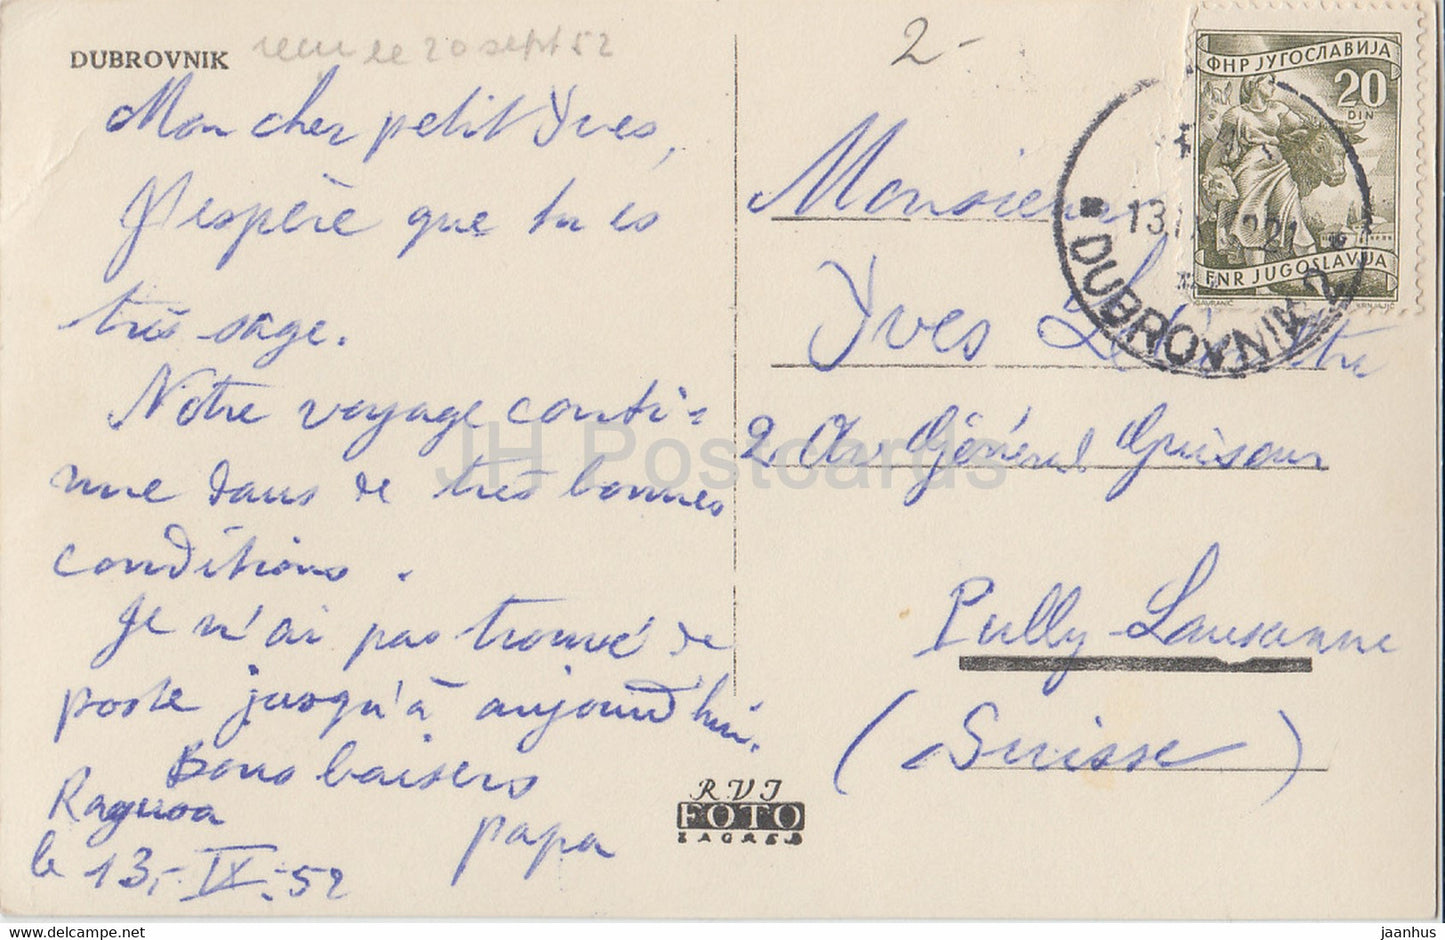 DUBROVNIK
reçue le 20 sept 52
2-
Mon cher petit Yves,
J'espère que tu es
très sage.
Notre voyage conti-
nue dans de très bonnes
conditions.
Je n'ai pas trouvé de
poste jusqu'à aujourd'hui.
Bons baisers
papa
Ragusa
le 13.-IX.-52
RVI
FOTO
ZAGREB
ФНР ЈУГОСЛАВИЈА
20
DIN
FNR JUGOSLAVIJA
DUBROVNIK 2
Monsieur
Yves
2 Av Général Guisan
Pully-Lausanne
(Suisse)
JH Postcards
jaanhus